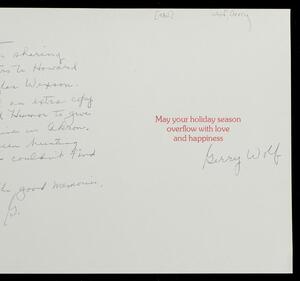 sharing
to Howard
Wexson.
an extra copy
Humor to give
in Akron.
been hunting
couldn't find
good memories.
G.
May your holiday season
overflow with love
and happiness
Gerry Wolf